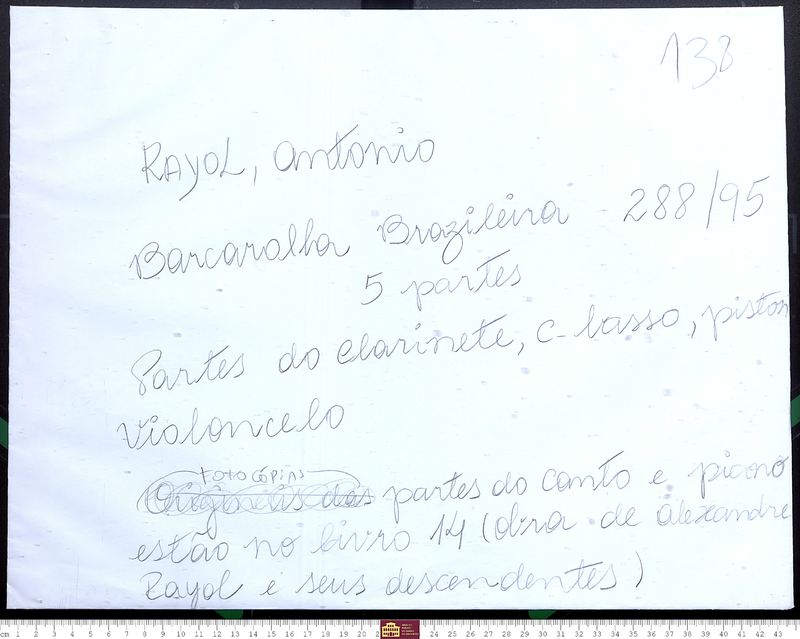 138
RAYOL, Antonio
Barcarolha Brazileira - 288/95
5 partes
Partes do clarinete, c-basso, piston
Violoncelo
fotocópias
Originais das partes do canto e piano
estão no livro 14 (obra de Alexandre
Rayol e seus descendentes)
cm 1 2 3 4 5 6 7 8 9 10 11 12 13 14 15 16 17 18 19 20 2 24 25 26 27 28 29 30 31 32 33 34 35 36 37 38 39 40 41 42 43